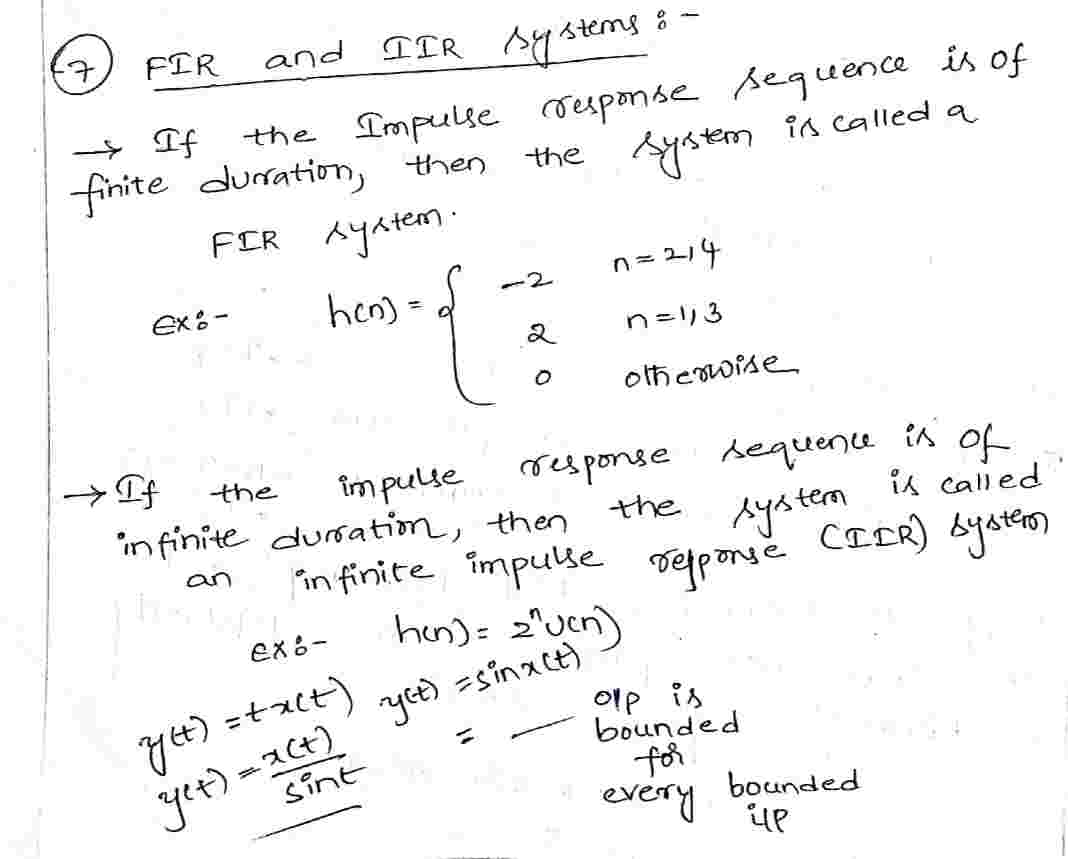 7 FIR and IIR systems :-
→ If the Impulse response sequence is of
finite duration, then the system is called a
FIR system.
ex:- h(n) = { -2 n=2,4
2 n=1,3
0 otherwise
→ If the impulse response sequence is of
infinite duration, then the system is called
an infinite impulse response (IIR) system
ex:- h(n) = 2ⁿu(n)
y(t) = t x(t) y(t) = sin x(t)
y(t) = x(t)/sint = — o/p is
bounded
for
every bounded
i/p